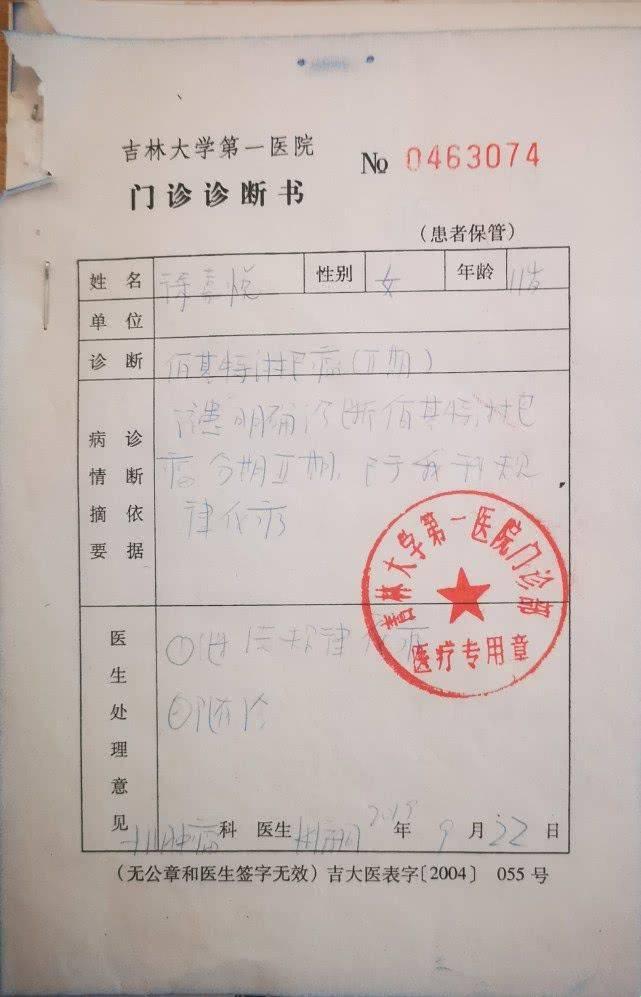 吉林大学第一医院
№ 0463074
门诊诊断书
(患者保管)
姓名 徐嘉悦 性别 女 年龄 11岁
单位
诊断 伯基特淋巴瘤(II期)
病情摘要 诊断依据
患明确诊断伯基特淋巴
瘤 分期II期, 于我科规
律化疗
吉林大学第一医院门诊部
医疗专用章
医生处理意见
① 规律化疗
②随诊
肿瘤科 医生 2019年9月22日
(无公章和医生签字无效) 吉大医表字[2004] 055号